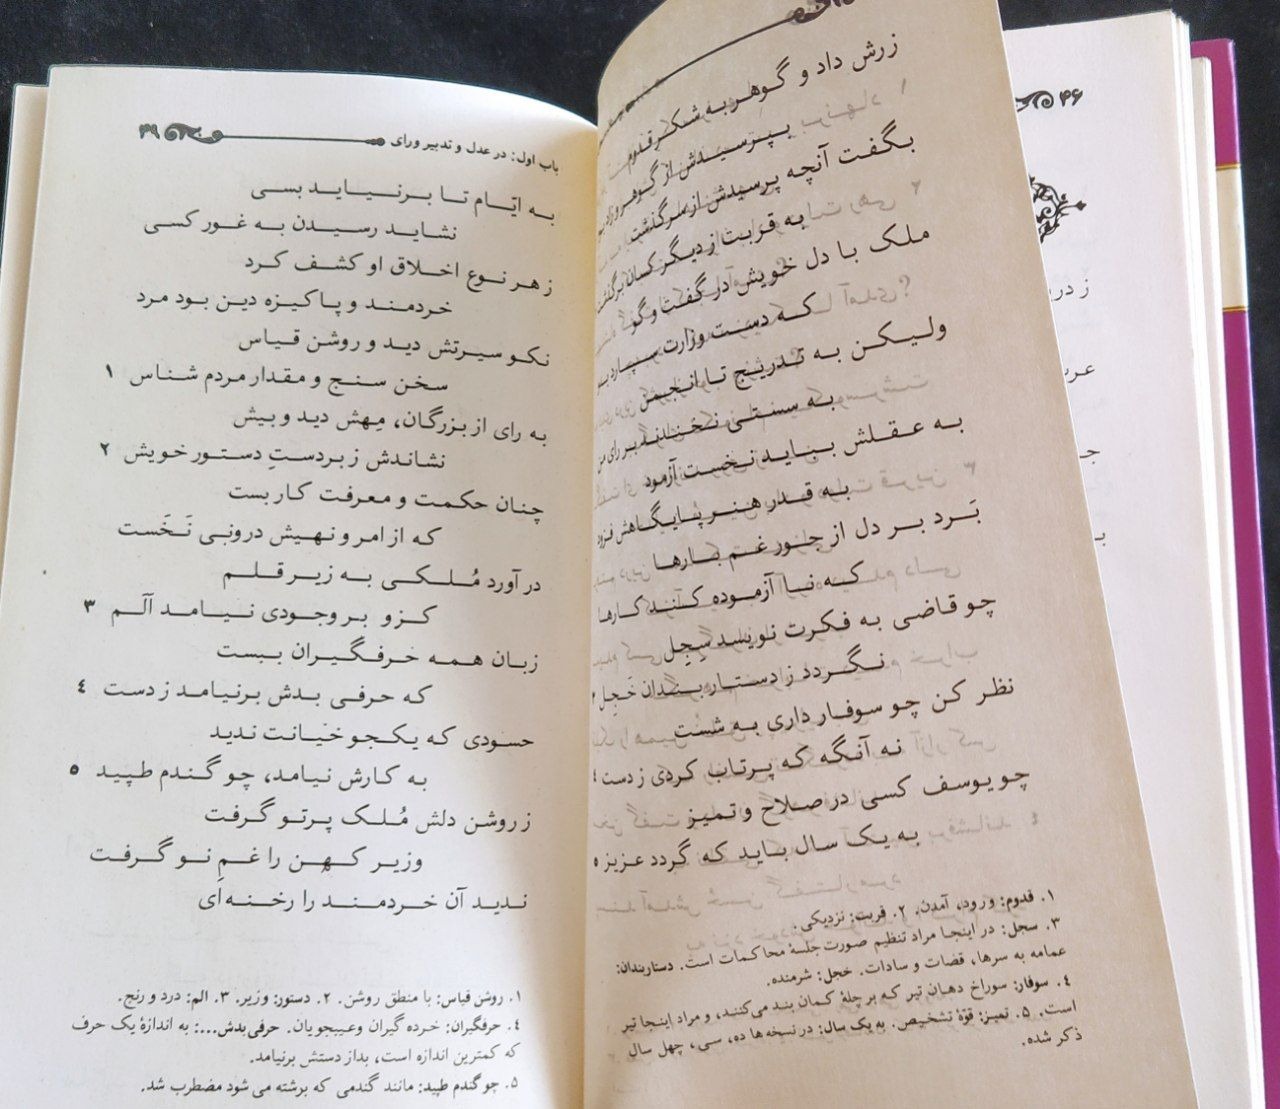 ۴۶
زرش داد و گوهر به شکر قدوم
بپرسیدش از گوهر و زاد
بگفت آنچه پرسیدش از سرگذشت
به قربت از دیگر کسان برگذشت
ملک با دل خویش در گفت و گو
که دست وزارت سپارد
ولیکن به تدریج تا انجمن
به سستی نخندند بر رای من
به عقلش بباید نخست آزمود
به قدر هنر پایگاهش فزود
بَرد بر دل از جور غم بارها
که نا آزموده کند کارها
چو قاضی به فکرت نویسد سِجِل
نگردد ز دستار بندان خَجِل ۳
نظر کن چو سوفار داری به شست
نه آنگه که پرتاب کردی ز دست ٤
چو یوسف کسی در صلاح و تمیز
به یک سال باید که گردد عزیز ۵
۱. قدوم: ورود، آمدن. ۲. قربت: نزدیکی.
۳. سجل: در اینجا مراد تنظیم صورت جلسهٔ محاکمات است. دستاربندان:
عمامه به سرها، قضات و سادات. خجل: شرمنده.
٤. سوفار: سوراخ دهان تیر که بر چلهٔ کمان بند می‌کنند، و مراد اینجا تیر
است. ۵. تمیز: قوّهٔ تشخیص. به یک سال: در نسخه‌ها ده، سی، چهل سال
ذکر شده.
باب اول: در عدل و تدبیر و رای ۳۹
به ایّام تا برنیاید بسی
نشاید رسیدن به غور کسی
ز هر نوع اخلاق او کشف کرد
خردمند و پاکیزه دین بود مرد
نکو سیرتش دید و روشن قیاس
سخن سنج و مقدار مردم شناس ۱
به رای از بزرگان، مِهش دید و بیش
نشاندش زبردستِ دستور خویش ۲
چنان حکمت و معرفت کار بست
که از امر و نهیش درونی نَخَست
در آورد مُلکی به زیر قلم
کزو بر وجودی نیامد اَلَم ۳
زبان همه حرفگیران ببست
که حرفی بدش برنیامد ز دست ٤
حسودی که یکجو خیانت ندید
به کارش نیامد، چو گندم طپید ۵
ز روشن دلش مُلک پرتو گرفت
وزیر کهن را غمِ نو گرفت
ندید آن خردمند را رخنه‌ای
۱. روشن قیاس: با منطق روشن. ۲. دستور: وزیر. ۳. الم: درد و رنج.
٤. حرفگیران: خرده گیران و عیبجویان. حرفی بدش...: به اندازهٔ یک حرف
که کمترین اندازه است، بد از دستش برنیامد.
۵. چو گندم طپید: مانند گندمی که برشته می شود مضطرب شد.